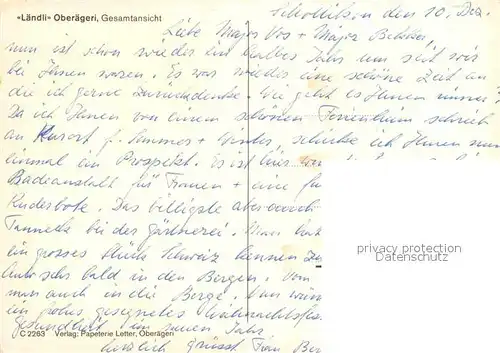 «Ländli» Oberägeri, Gesamtansicht
den 10. Dez.
Liebe Major Vos + Major
nun ist schon wieder ein halbes Jahr um seit wir
bei Ihnen waren. Es war wieder eine schöne Zeit an
die ich gerne zurückdenke. Wie geht es Ihnen immer?
Da ich Ihnen von einem schönen Ferienheim schrieb
an Kurort f. Sommer + Winter, schicke ich Ihnen nun
einmal ein Prospekt. Es ist hier
Badianstalt für Frauen + eine
Ruderbote. Das billigste aber
Tanneck bei der Gärtnerei. Man
ein grosses Stück Schweiz kennen
bald in den Bergen. Von
man auch in die Berge. Nun
ein frohes gesegnetes Weihnachtsfes
Gesundheit im neuen Jahr
herzlich grüsst Frau Ber
privacy protection
Datenschutz
C 2263 Verlag: Papeterie Letter, Oberägeri